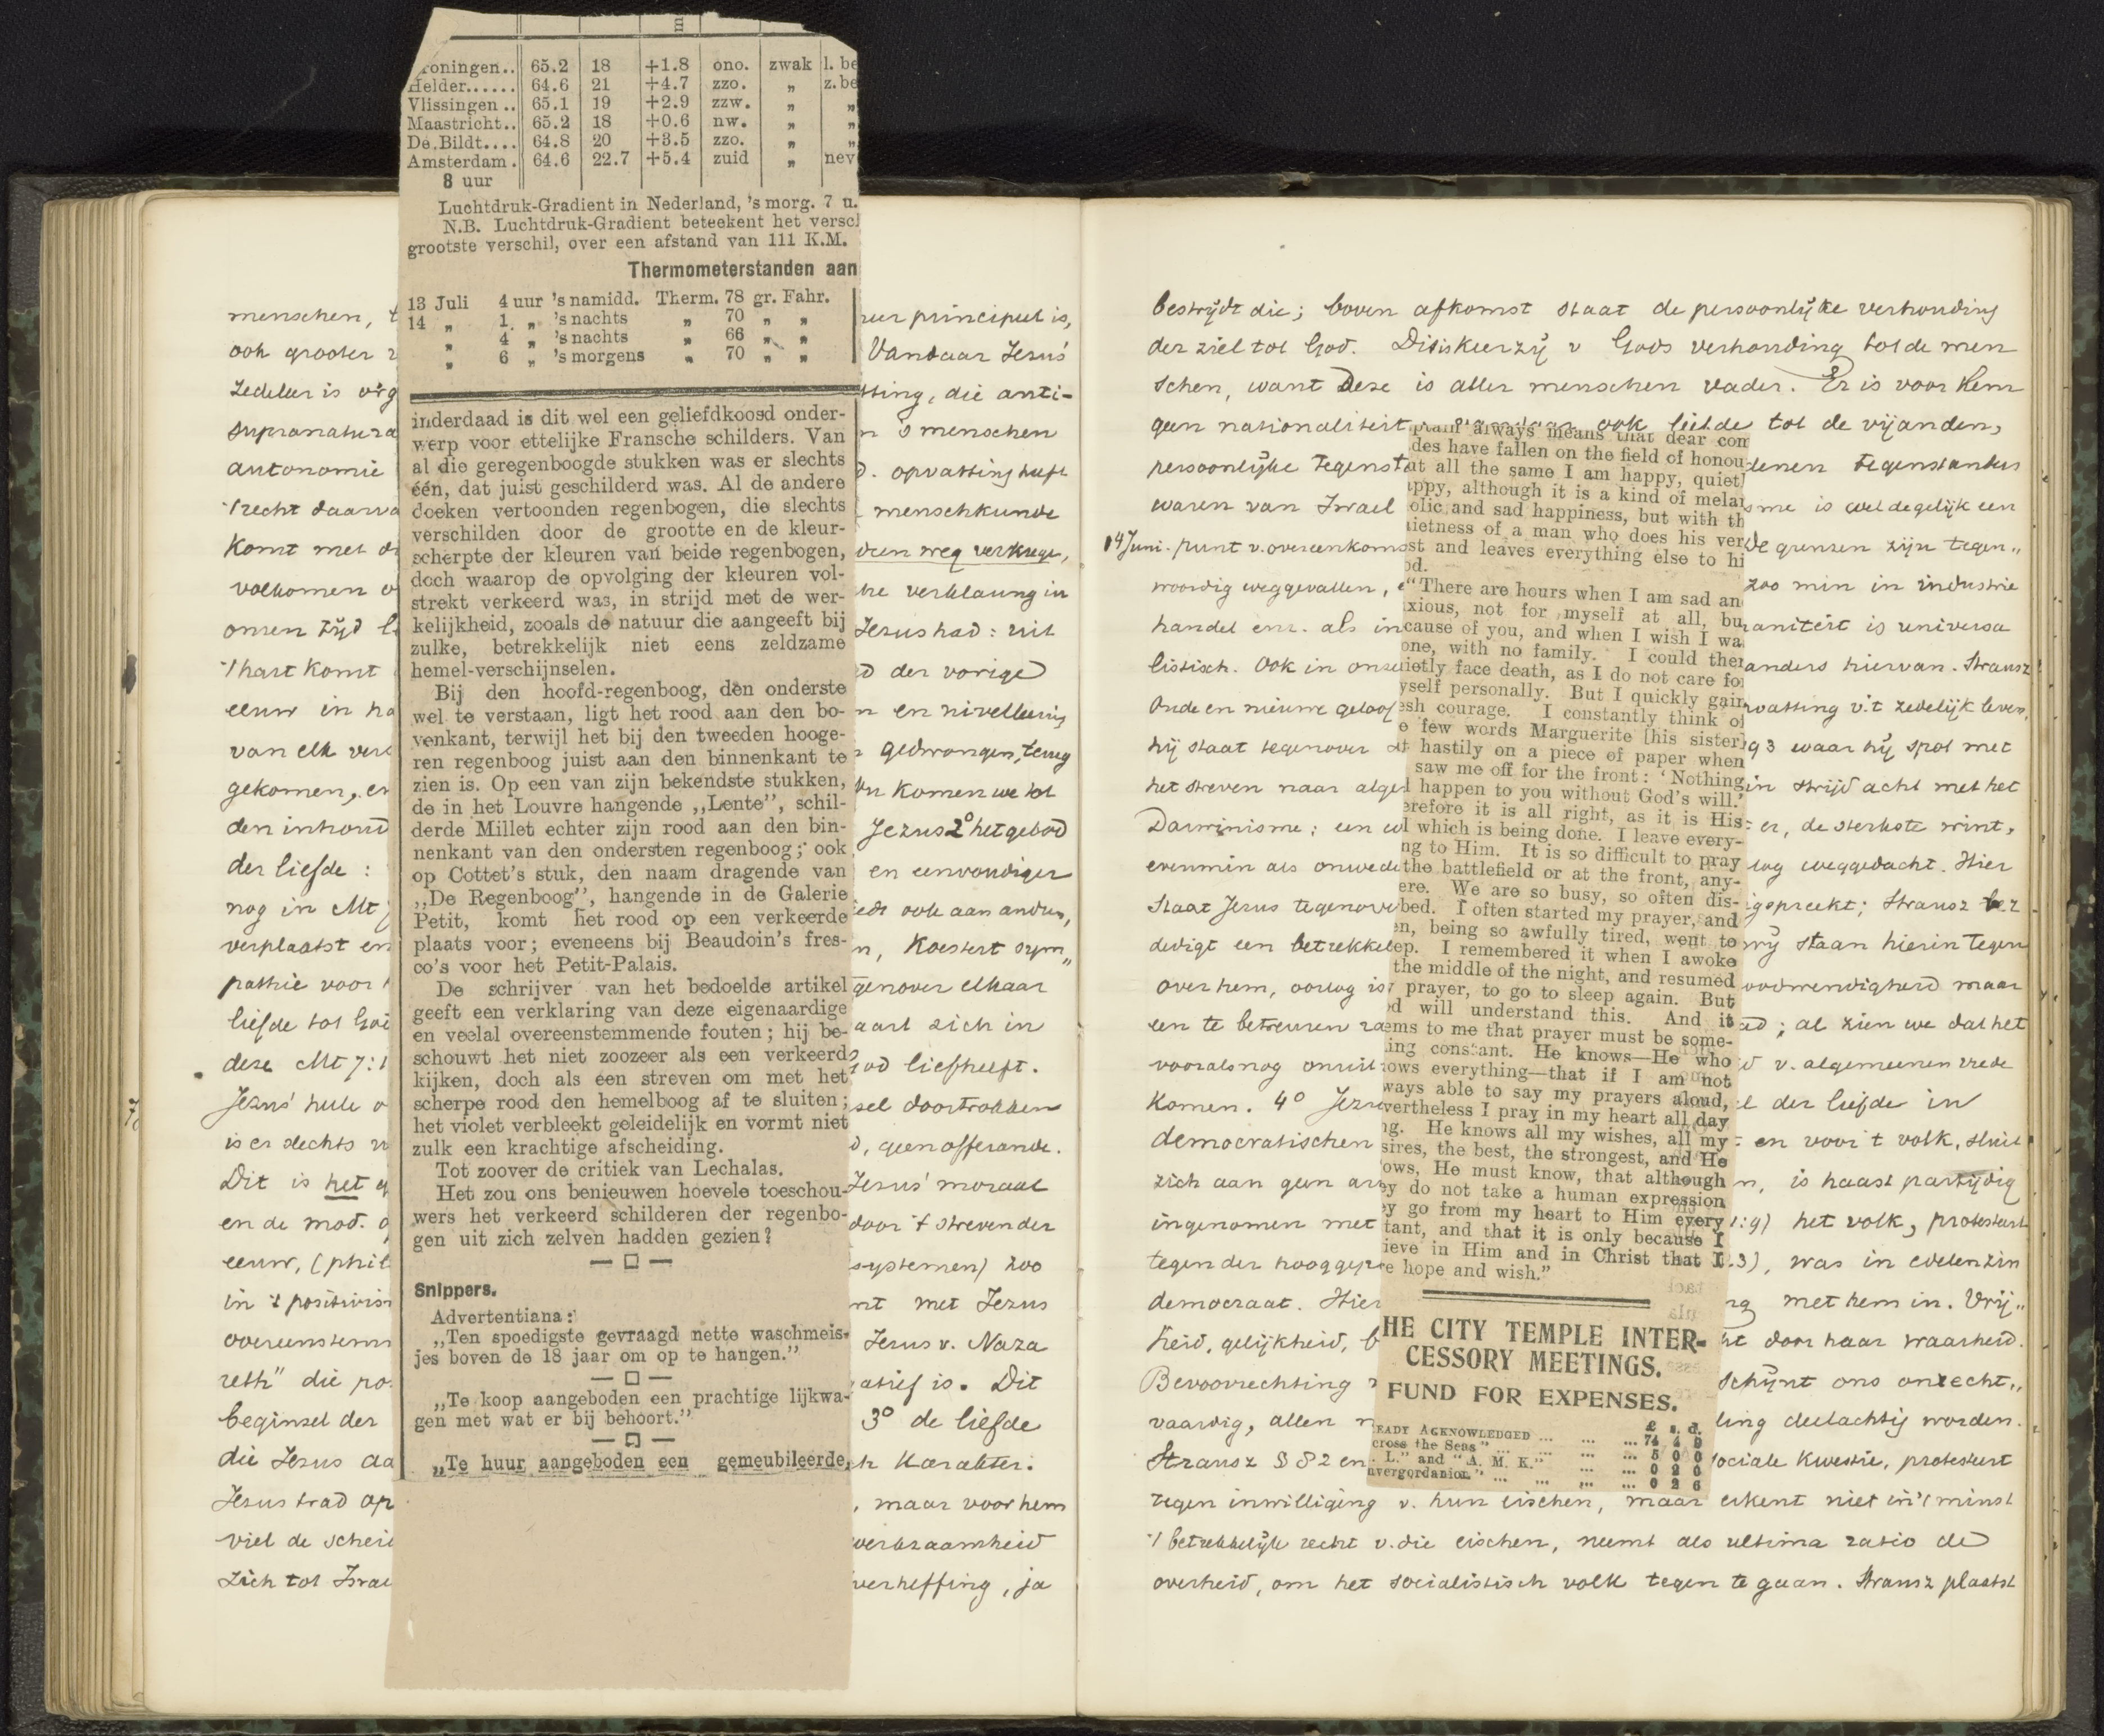 Groningen.. 65.2 18 +1.8 ono. zwak l. be
Helder...... 64.6 21 +4.7 zzo. „ z. be
Vlissingen .. 65.1 19 +2.9 zzw. „ „
Maastricht.. 65.2 18 +0.6 nw. „ „
De Bildt.... 64.8 20 +3.5 zzo. „ „
Amsterdam. 64.6 22.7 +5.4 zuid „ nev
8 uur
Luchtdruk-Gradient in Nederland, 's morg. 7 u.
N.B. Luchtdruk-Gradient beteekent het versc
grootste verschil, over een afstand van 111 K.M.
Thermometerstanden aan
13 Juli 4 uur 's namidd. Therm. 78 gr. Fahr.
14 „ 1 „ 's nachts „ 70 „ „
„ 4 „ 's nachts „ 66 „ „
„ 6 „ 's morgens „ 70 „ „
inderdaad is dit wel een geliefdkoosd onder-
werp voor ettelijke Fransche schilders. Van
al die geregenboogde stukken was er slechts
één, dat juist geschilderd was. Al de andere
doeken vertoonden regenbogen, die slechts
verschilden door de grootte en de kleur-
scherpte der kleuren van beide regenbogen,
doch waarop de opvolging der kleuren vol-
strekt verkeerd was, in strijd met de wer-
kelijkheid, zooals de natuur die aangeeft bij
zulke, betrekkelijk niet eens zeldzame
hemel-verschijnselen.
Bij den hoofd-regenboog, den onderste
wel te verstaan, ligt het rood aan den bo-
venkant, terwijl het bij den tweeden hooge-
ren regenboog juist aan den binnenkant te
zien is. Op een van zijn bekendste stukken,
de in het Louvre hangende „Lente”, schil-
derde Millet echter zijn rood aan den bin-
nenkant van den ondersten regenboog; ook
op Cottet's stuk, den naam dragende van
„De Regenboog”, hangende in de Galerie
Petit, komt het rood op een verkeerde
plaats voor; eveneens bij Beaudoin's fres-
co's voor het Petit-Palais.
De schrijver van het bedoelde artikel
geeft een verklaring van deze eigenaardige
en veelal overeenstemmende fouten; hij be-
schouwt het niet zoozeer als een verkeerd
kijken, doch als een streven om met het
scherpe rood den hemelboog af te sluiten;
het violet verbleekt geleidelijk en vormt niet
zulk een krachtige afscheiding.
Tot zoover de critiek van Lechalas.
Het zou ons benieuwen hoevele toeschou-
wers het verkeerd schilderen der regenbo-
gen uit zich zelven hadden gezien?
Snippers.
Advertentiana:
„Ten spoedigste gevraagd nette waschmeis-
jes boven de 18 jaar om op te hangen.”
„Te koop aangeboden een prachtige lijkwa-
gen met wat er bij behoort.”
„Te huur aangeboden een gemeubileerde,
menschen, principieel is,
ook grooter Vandaar Jezus'
zedeleer is tting, die anti-
supranatura n 's menschen
autonomie opvatting heeft
't recht daarva menschkunde
komt met den weg verkrege,
volkomen verklaring in
onzen tijd Jezus had: uit
't hart komt d der vorige
eeuw in n en nivelleering
van elk gedwongen, terug
gekomen, en komen we tot
den inhoud Jezus 2° het gebod
der liefde: en eenvoudiger
nog in Mt ook aan andere,
verplaatst en n, koestert sym„
pathie voor genover elkaar
liefde tot God aart zich in
deze Mt 7:1 God liefheeft.
Jezus' hele sel doortrokken
is er slechts d, geen offerande.
Dit is het Jezus' moraal
en de mod. door 't streven der
eeuw, (phil systemen) zoo
in 't positivism met Jezus
overeenstemm Jezus v. Naza
reth" die po atief is. Dit
beginsel der 3° de liefde
die Jezus karakter.
Jezus trad op , maar voor hem
viel de schei werkzaamheid
zich tot Israe verheffing, ja
bestrijdt die; boven afkomst staat de persoonlijke verhouding
der ziel tot God. Dit is keerzij v Gods verhouding tot de men
schen, want Deze is aller menschen vader. Er is voor hem
geen nationaliteit ook liefde tot de vijanden,
persoonlijke tegenst denen tegenstanders
waren van Israel sme is wel degelijk een
14 Juni. punt v. overeenkomst de grenzen zijn tegen„
woordig weggevallen, zoo min in industrie
handel enz. als in aniteit is universa
listisch. Ook in onze anders hiervan. Strausz
Oude en nieuwe geloof vatting v. 't zedelijk leven,
hij staat tegenover 93 waar hij spot met
het streven naar alge in strijd acht met het
Darwinisme; een er, de sterkste wint,
evenmin als onwede log weggedacht. Hier
staat Jezus tegenover igspreekt; Strausz ver
dedigt een betrekkel wij staan hierin tegen
over hem, oorlog is noodwendigheid maar
een te betreuren ; al zien we dat het
vooralsnog v. algemeenen vrede
komen. 4° Jezus el der liefde in
democratischen en voor 't volk, sluit
zich aan geen n, is haast partijdig
ingenomen met 1:9) het volk, protesteert
tegen der hooggeplaatste .3), was in edelen zin
democraat. Hier ng met hem in. Vrij„
heid, gelijkheid, b ht door haar waarheid.
Bevoorrechting schijnt ons onrecht„
vaardig, allen ling deelachtig worden.
Strausz § 82 en sociale kwestie, protesteert
tegen inwilliging v. hun eischen, maar erkent niet in 't minst
't betrekkelijk recht v. die eischen, neemt als ultima ratio de
overheid, om het socialistisch volk tegen te gaan. Strausz plaatst
always means that dear com
des have fallen on the field of honou
at all the same I am happy, quietl
appy, although it is a kind of melan
olic and sad happiness, but with th
uietness of a man who does his ver
st and leaves everything else to hi
od.
“There are hours when I am sad an
xious, not for myself at all, bu
cause of you, and when I wish I wa
one, with no family. I could ther
ietly face death, as I do not care fo
yself personally. But I quickly gain
esh courage. I constantly think of
e few words Marguerite [his sister]
t hastily on a piece of paper when
saw me off for the front: ‘Nothing
l happen to you without God's will.’
erefore it is all right, as it is His
l which is being done. I leave every-
ng to Him. It is so difficult to pray
the battlefield or at the front, any-
ere. We are so busy, so often dis-
bed. I often started my prayer, and
en, being so awfully tired, went to
ep. I remembered it when I awoke
the middle of the night, and resumed
prayer, to go to sleep again. But
od will understand this. And it
ems to me that prayer must be some-
ing constant. He knows—He who
ows everything—that if I am not
ways able to say my prayers aloud,
vertheless I pray in my heart all day
ng. He knows all my wishes, all my
sires, the best, the strongest, and He
ows, He must know, that although
ey do not take a human expression
ey go from my heart to Him every
tant, and that it is only because I
ieve in Him and in Christ that I
e hope and wish.”
HE CITY TEMPLE INTER-
CESSORY MEETINGS.
FUND FOR EXPENSES.
£ s. d.
EADY ACKNOWLEDGED ... ... ... 74 4 9
cross the Seas” ... ... ... 5 0 0
. L.” and “A. M. K.” ... ... 0 2 0
nvergordanion” ... ... ... ... 0 2 6